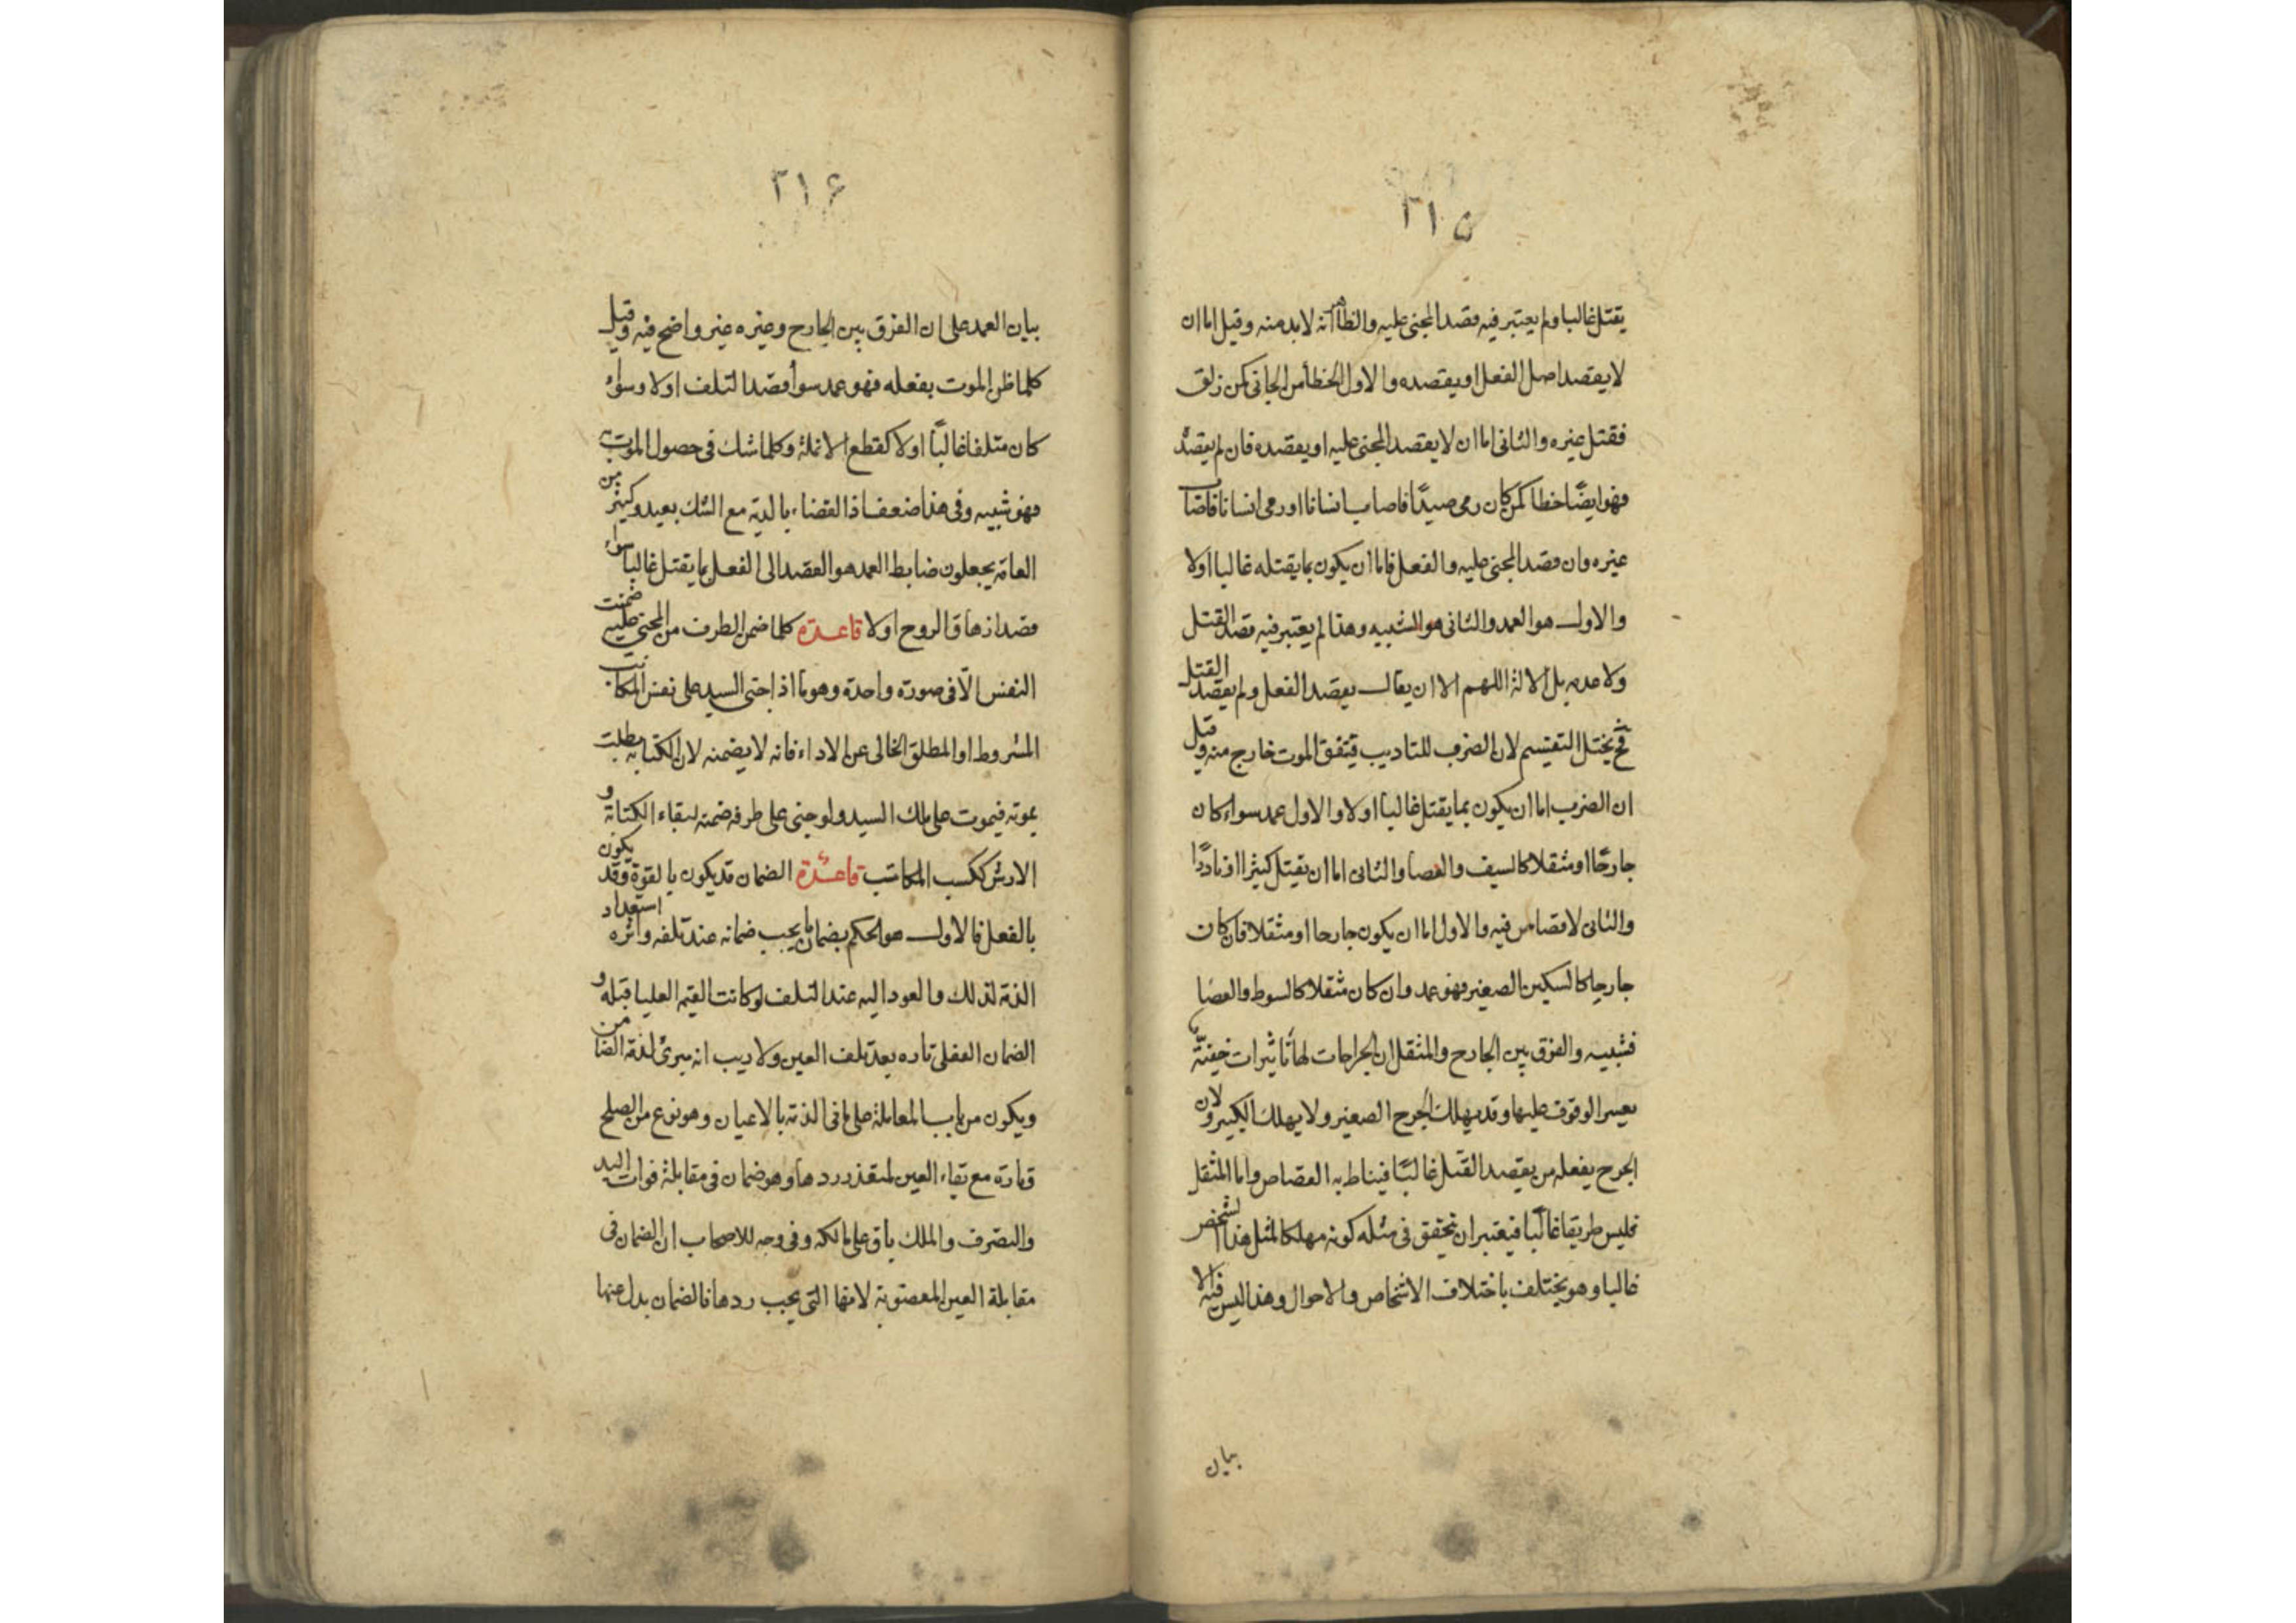 ٣١٥
يقتل غالبا ولم يعتبر فيه قصد المجنى عليه والظاهر انه لابد منه وقيل اما ان
لا يقصد اصل الفعل او يقصده والاول الخطأ من الجانى كمن زلق
فقتل غيره والثانى اما ان لا يقصد المجنى عليه او يقصده فان لم يقصد
فهو ايضًا خطا كمن كان رمى صيدًا فاصاب انسانا او رمى انسانا فاصاب
غيره وان قصد المجنى عليه والفعل فاما ان يكون بما يقتله غالبا او لا
والاول هو العمد والثانى هو الشبيه وهذا لم يعتبر فيه قصد القتل
ولا عدمه بل الالة اللهم الا ان يقال يقصد الفعل ولم يقصد القتل
فح يختل التقسيم لان الضرب للتاديب فيتفق الموت خارج منه وقيل
ان الضرب اما ان يكون بما يقتل غالبا او لا والاول عمد سواء كان
جارحًا او مثقلا كالسيف والعصا والثانى اما ان يقتل كثيرا او نادرًا
والثانى لا قصاص فيه والاول اما ان يكون جارحا او مثقلا فان كان
جارحا كالسكين الصغير فهو عمد وان كان مثقلا كالسوط والعصا
فشبيه والفرق بين الجارح والمثقل ان الجراحات لها تأثيرات خفيّة
يعسر الوقوف عليها وقد يهلك الجرح الصغير ولا يهلك الكبير ولان
الجرح يفعله من يقصد القتل غالبًا فيناط به القصاص واما المثقل
فليس طريقا غالبًا فيعتبر ان يتحقق فى مثله كونه مهلكا لمثل هذا الشخص
غالبا وهو يختلف باختلاف الاشخاص والاحوال وهذا ليس فيه الا
بيان
٣١۶
بيان العمد على ان الفرق بين الجارح وغيره غير واضح فيه وقيل
كلما ظن الموت بفعله فهو عمد سوأ قصد التلف او لا وسواء
كان متلفا غالبًا او لا كقطع الانملة وكلما شك فى حصول الموت به
فهو شبيه وفى هذا ضعف اذ القضاء بالدية مع الشك بعيد وكثير من
العامة يجعلون ضابط العمد هو القصد الى الفعل بما يقتل غالبا سواء
قصد ازهاق الروح او لا قاعدة كلما ضمن الطرف من المجنى عليه ضمنت
النفس الّا فى صورة واحدة وهو ما اذا جنى السيد على نفس المكاتب
المشروط او المطلق الخالى عن الاداء فانه لا يضمنه لان الكتابه بطلت
بموته فيموت على ملك السيد ولو جنى على طرفه ضمنه لبقاء الكتابة و
الارش ككسب المكاتب قاعدة الضمان قد يكون بالقوة وقد يكون
بالفعل فالاول هو الحكم بضمان ما يجب ضمانه عند تلفه واثره استعداد
الذمة لذلك والعود اليه عند التلف لو كانت القيم العليا قبله و
الضمان الفعلى تاره بعد تلف العين ولا ريب انه مبرئ لذمة الضامن
ويكون من باب المعاملة على ما فى الذمة بالاعيان وهو نوع من الصلح
وتارة مع بقاء العين لتعذر ردها وهو ضمان فى مقابلة فوات اليد
والتصرف والملك باق على مالكه وفى وجه للاصحاب ان الضمان فى
مقابلة العين المغصوبة لانها التى يجب ردها فالضمان بدل عنها